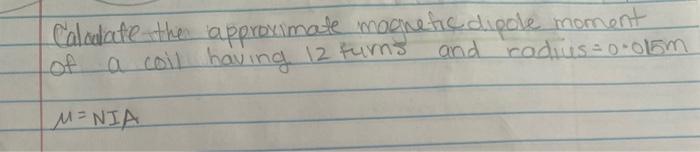 Calculate the approximate magnetic dipole moment
of a coil having 12 turns and radius = 0.015m
μ = NIA